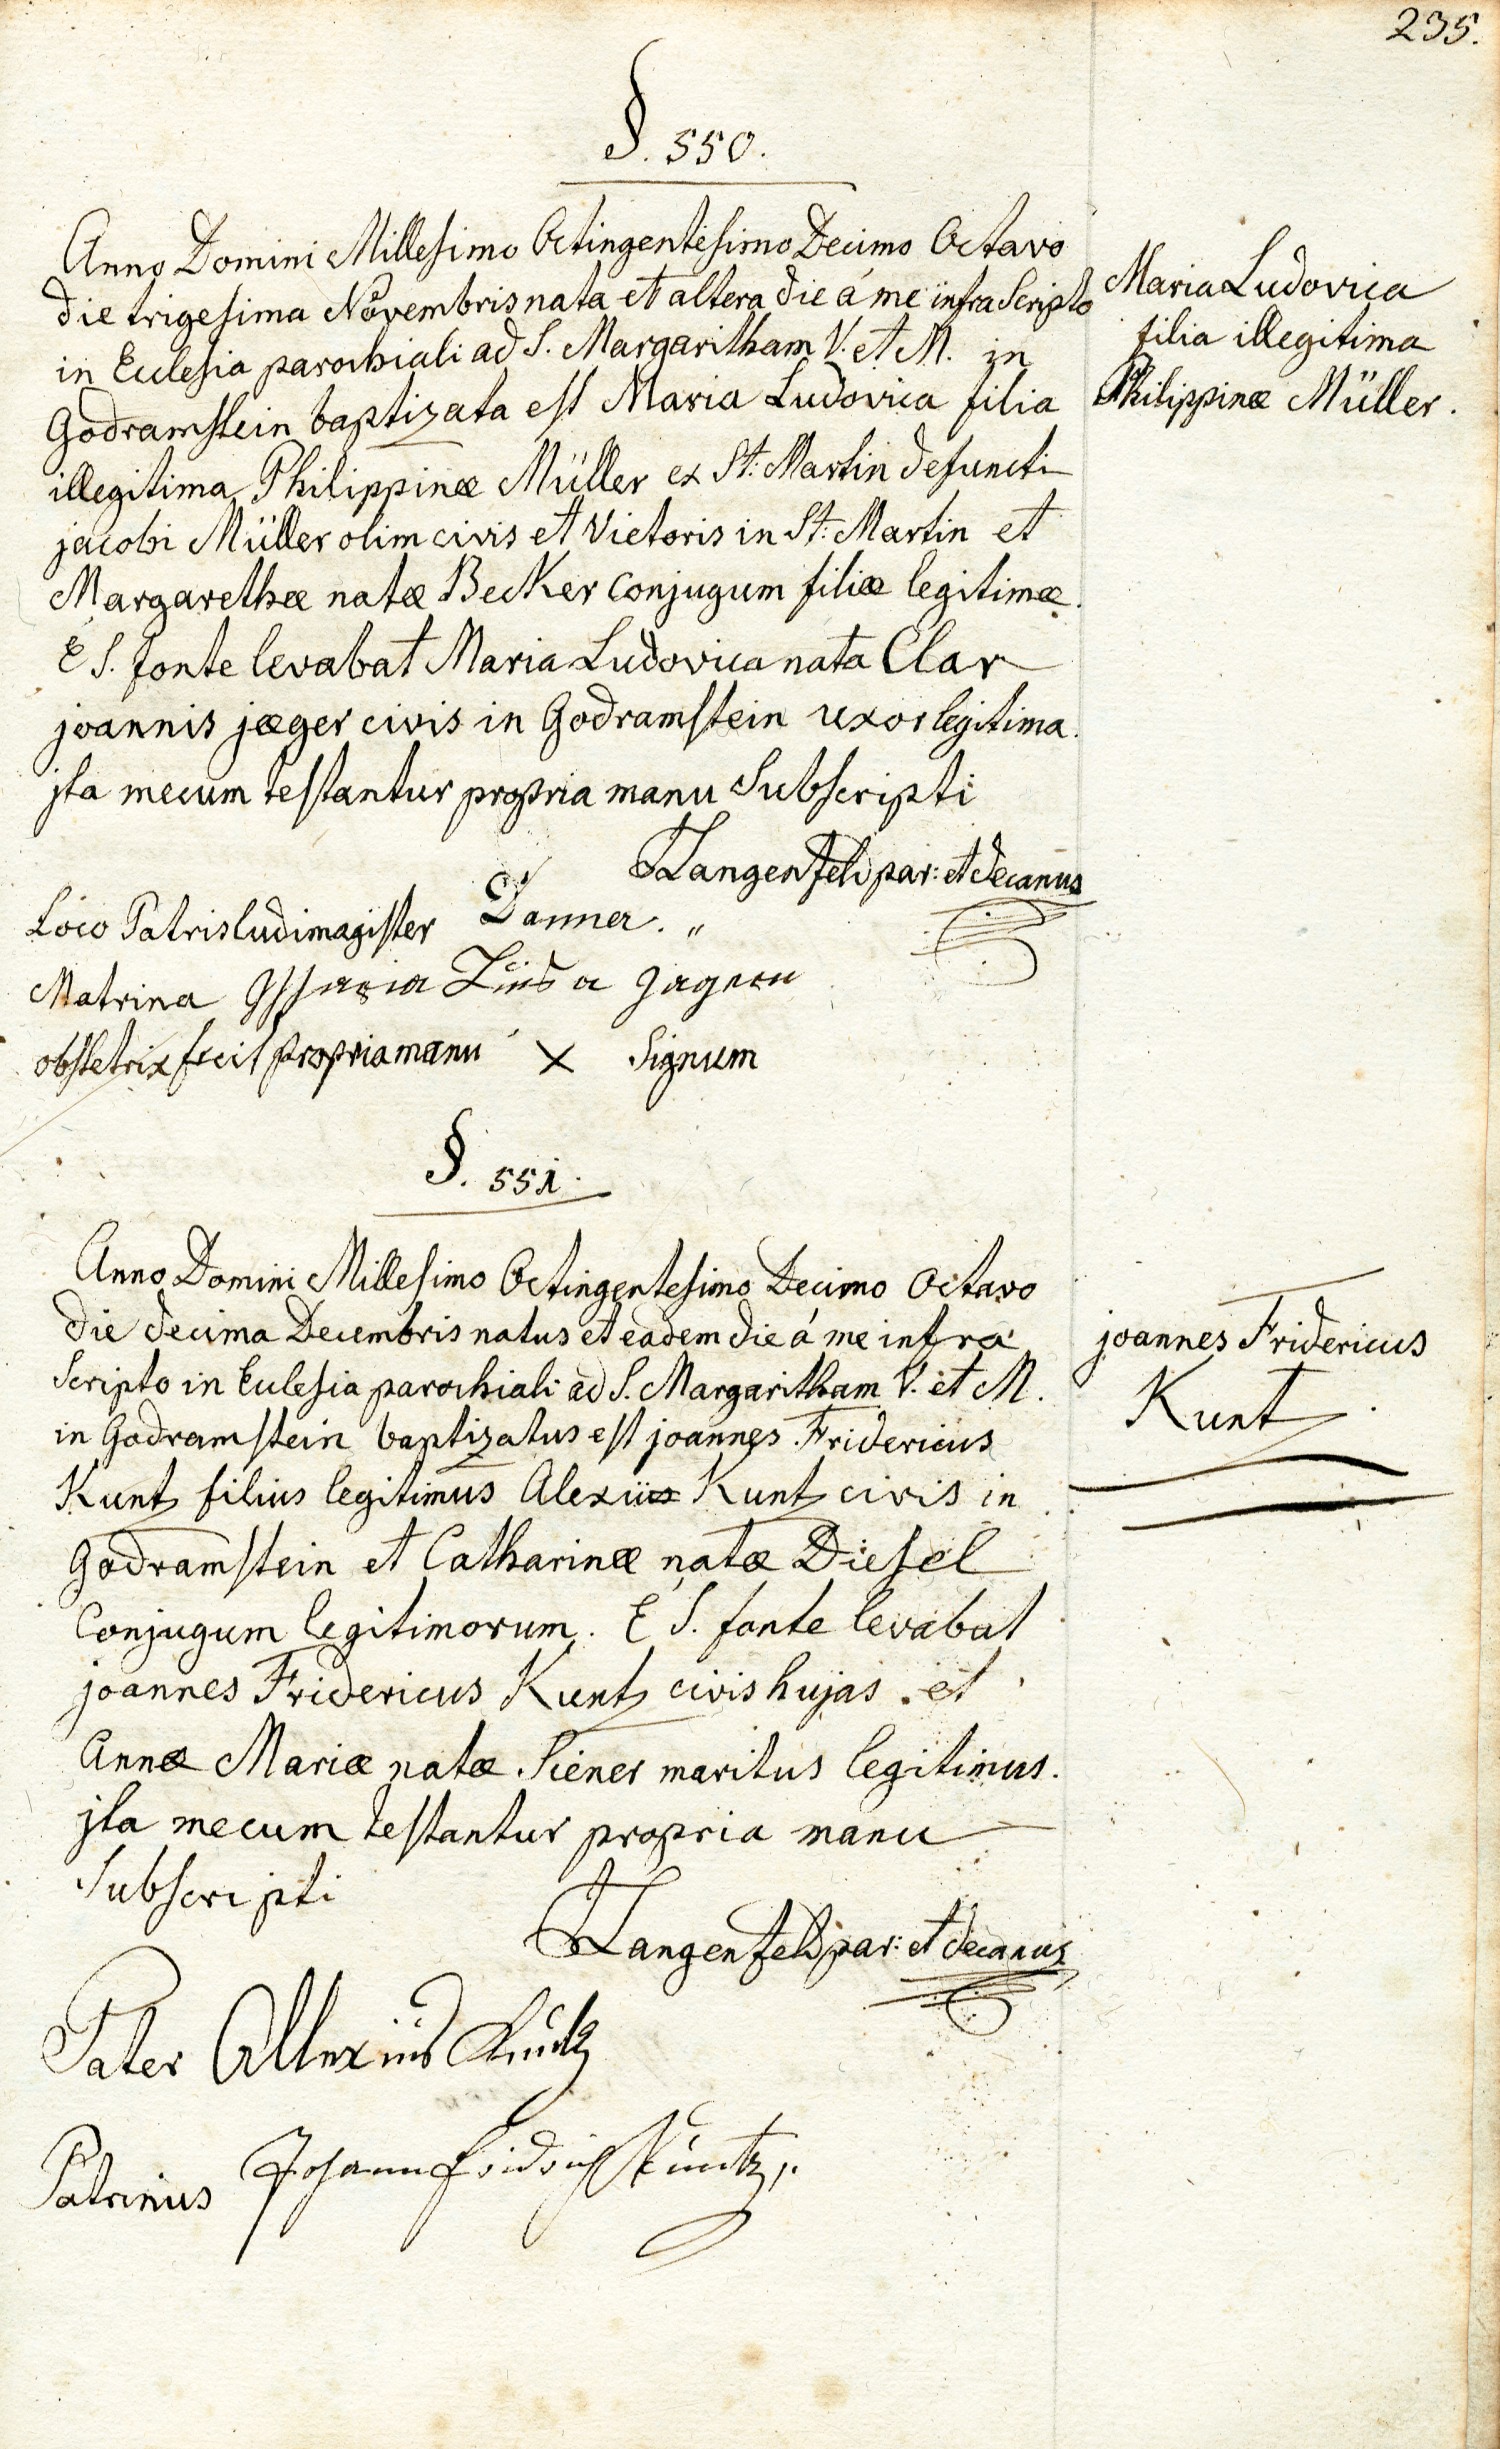 235.
§. 550.
Anno Domini Millesimo Octingentesimo Decimo Octavo
die trigesima Novembris nata et altera die á me infra Scripto
in Eculesia parochiali ad S. Margaritham V. et M. in
Godramstein baptizata est Maria Ludovica filia
illegitima Philippinæ Müller ex St: Martin defuncti
jacobi Müller olim civis et Vietoris in St: Martin et
Margarethæ natæ Becker Conjugum filiæ legitimæ.
E S. fonte levabat Maria Ludovica nata Clar
joannis jæger civis in Godramstein uxor legitima.
jta mecum testantur propria manu Subscripti
Langenfeld par: et decanus
Loco Patris ludimagister Danner. „
Matrina Maria Luisa Jagerin
obstetrix fecit propria manu X Signum
Maria Ludovica
filia illegitima
Philippinæ Müller.
§. 551.
Anno Domini Millesimo Octingentesimo Decimo Octavo
die decima Decembris natus et eadem die á me infra
Scripto in Eculesia parochiali ad S. Margaritham V. et M.
in Godramstein baptizatus est joannes Fridericus
Kuntz filius legitimus Alexii Kuntz civis in
Godramstein et Catharinæ natæ Diesel
Conjugum legitimorum. E S. fonte levabat
joannes Fridericus Kuntz civis hujas et
Annæ Mariæ natæ Siener maritus legitimus.
jta mecum testantur propria manu
Subscripti
Langenfeld par: et decanus
Pater Allexius Kuntz
Patrinus Johann Fridrich Kuntz
joannes Fridericus
Kuntz.